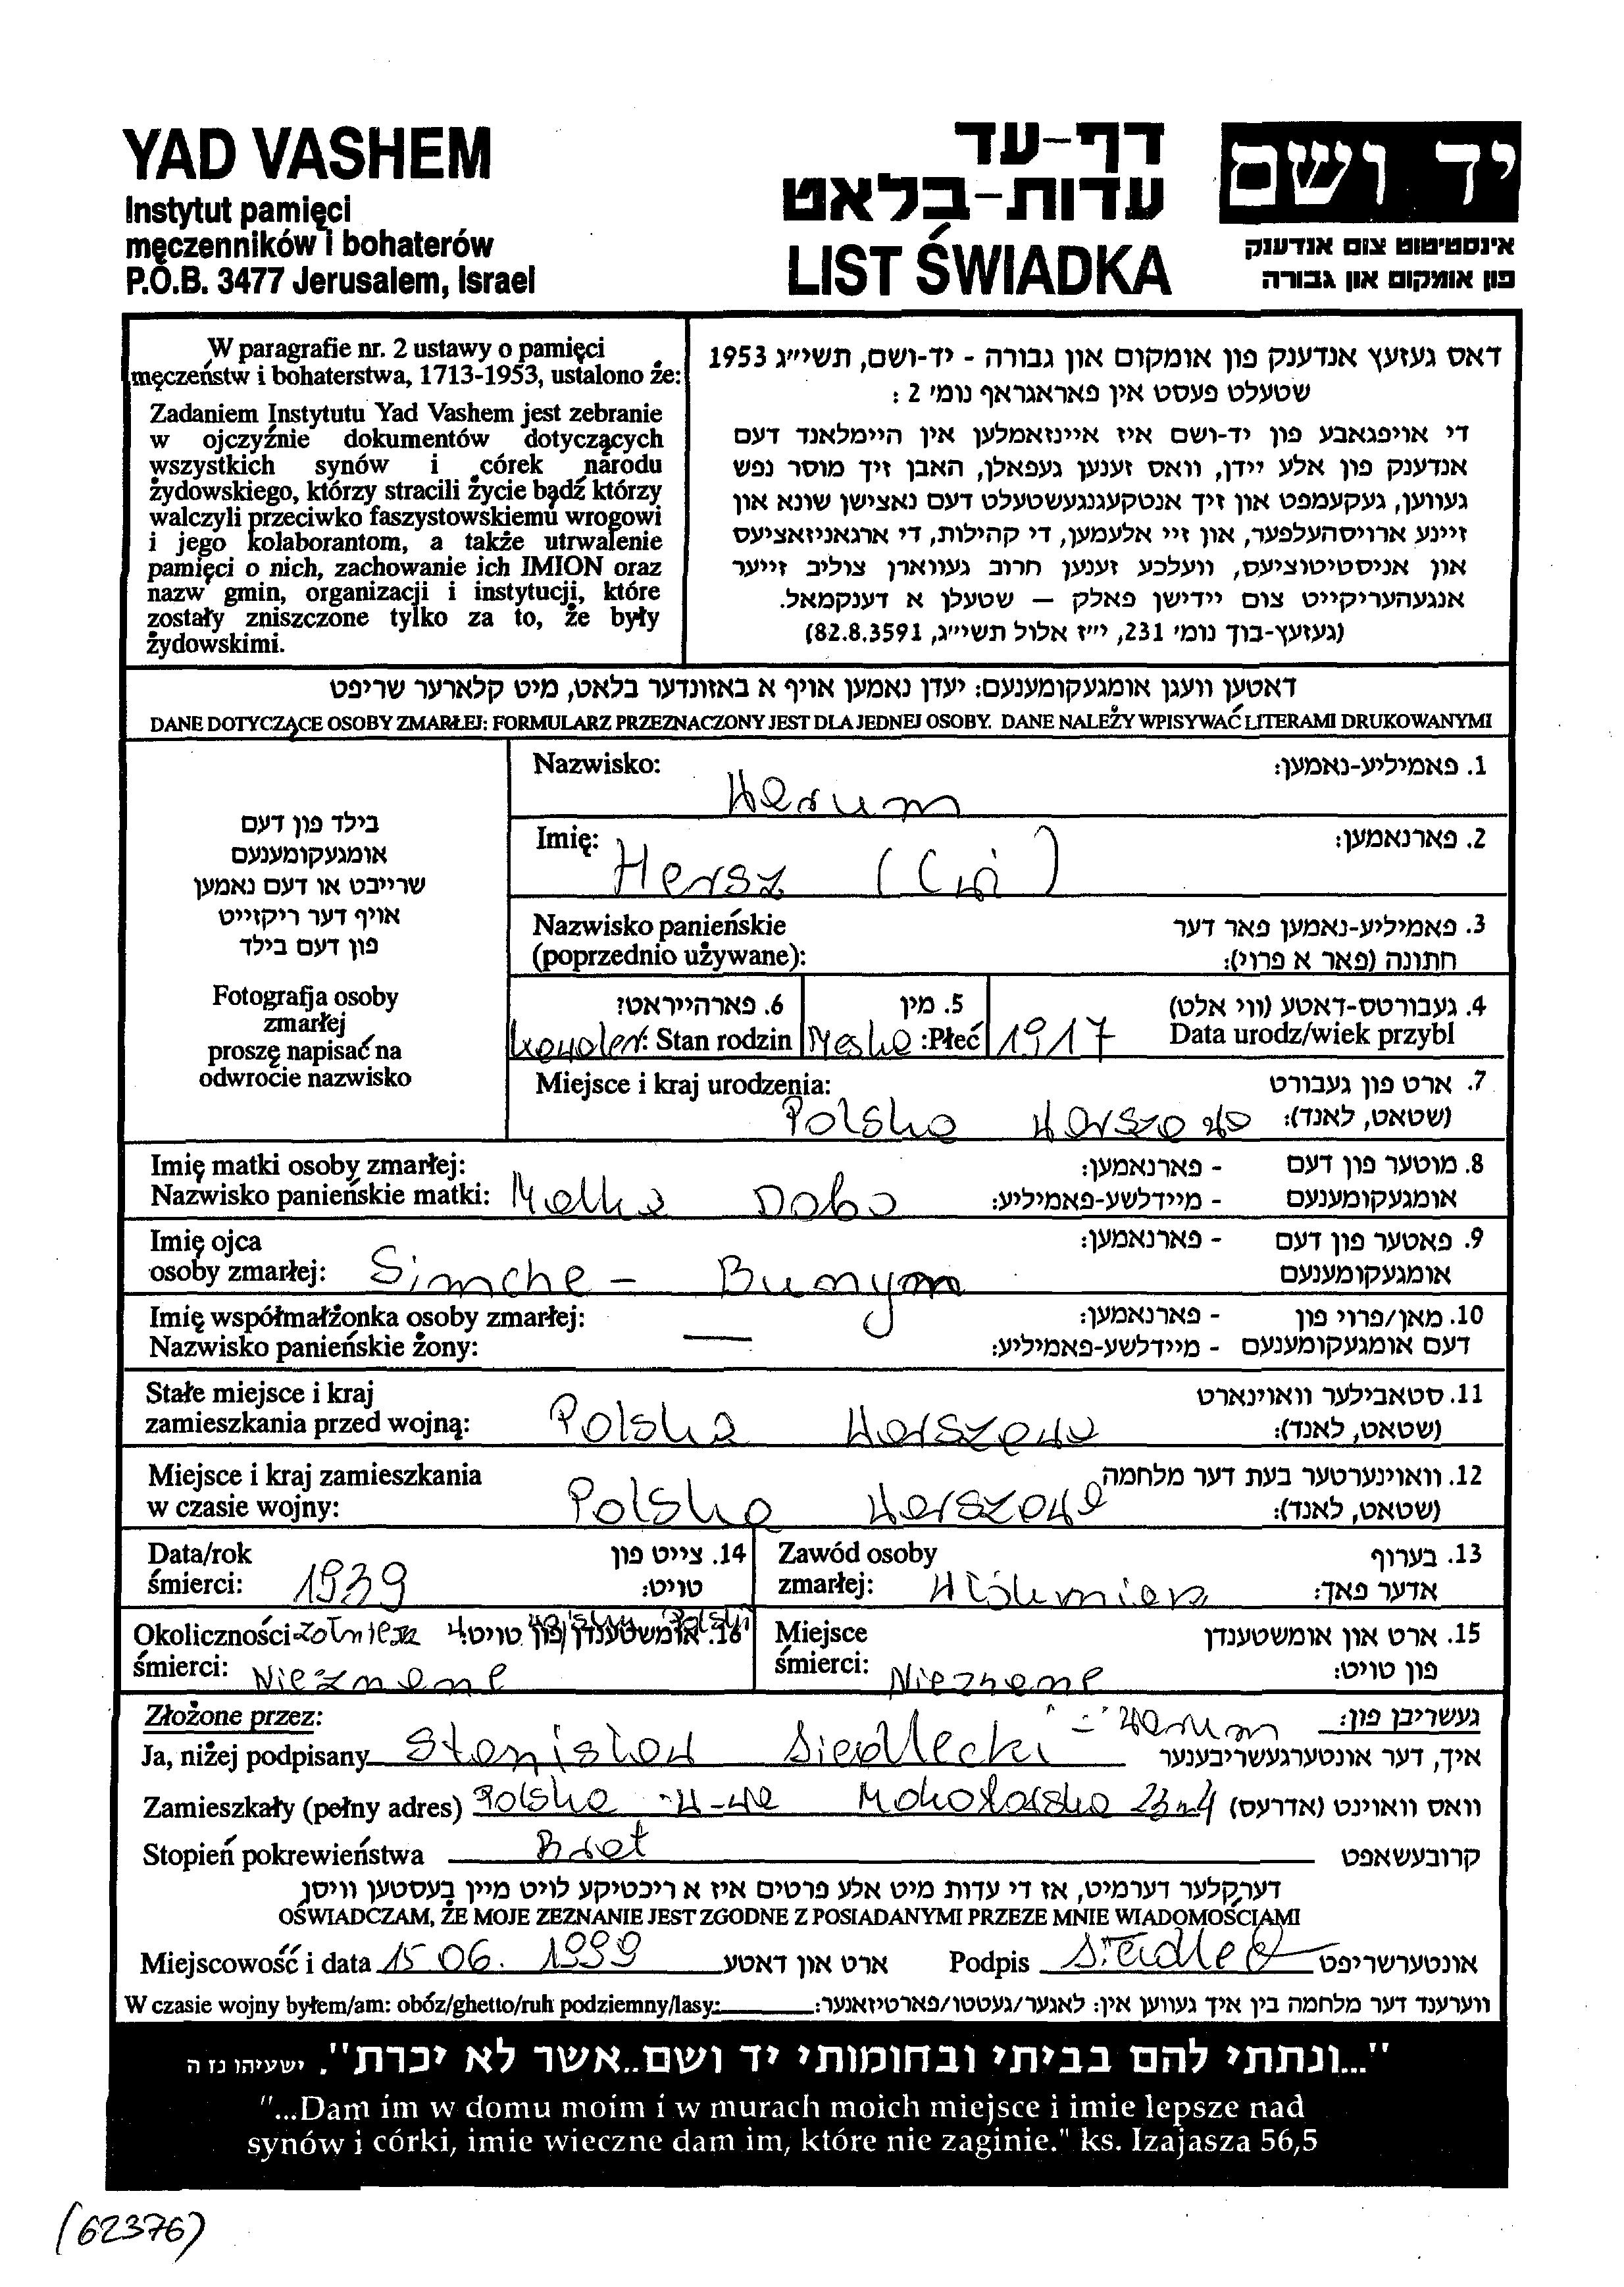 YAD VASHEM
Instytut pamięci
męczenników i bohaterów
P.O.B. 3477 Jerusalem, Israel
דף-עד
עדות-בלאט
LIST ŚWIADKA
יד ושם
אינסטיטוט צום אנדענק
פון אומקום און גבורה
W paragrafie nr. 2 ustawy o pamięci
męczeństw i bohaterstwa, 1713-1953, ustalono że:
Zadaniem Instytutu Yad Vashem jest zebranie
w ojczyźnie dokumentów dotyczących
wszystkich synów i córek narodu
żydowskiego, którzy stracili życie bądź którzy
walczyli przeciwko faszystowskiemu wrogowi
i jego kolaborantom, a także utrwalenie
pamięci o nich, zachowanie ich IMION oraz
nazw gmin, organizacji i instytucji, które
zostały zniszczone tylko za to, że były
żydowskimi.
דאס געזעץ אנדענק פון אומקום און גבורה - יד-ושם, תשי״ג 1953
שטעלט פעסט אין פאראגראף נומ׳ 2 :
די אויפגאבע פון יד-ושם איז איינזאמלען אין היימלאנד דעם
אנדענק פון אלע יידן, וואס זענען געפאלן, האבן זיך מוסר נפש
געווען, געקעמפט און זיך אנטקעגנגעשטעלט דעם נאצישן שונא און
זיינע ארויסהעלפער, און זיי אלעמען, די קהילות, די ארגאניזאציעס
און אניסטיטוציעס, וועלכע זענען חרוב געווארן צוליב זייער
אנגעהעריקייט צום יידישן פאלק – שטעלן א דענקמאל.
(געזעץ-בוך נומ׳ 231, י״ז אלול תשי״ג, 82.8.3591)
דאטען וועגן אומגעקומענעם: יעדן נאמען אויף א באזונדער בלאט, מיט קלארער שריפט
DANE DOTYCZĄCE OSOBY ZMARŁEJ: FORMULARZ PRZEZNACZONY JEST DLA JEDNEJ OSOBY. DANE NALEŻY WPISYWAĆ LITERAMI DRUKOWANYMI
בילד פון דעם
אומגעקומענעם
שרייבט או דעם נאמען
אויף דער ריקזייט
פון דעם בילד
Fotografja osoby
zmarłej
proszę napisać na
odwrocie nazwisko
Nazwisko: Werum 1. פאמיליע-נאמען:
Imię: Hersz ( ) 2. פארנאמען:
Nazwisko panieńskie 3. פאמיליע-נאמען פאר דער
(poprzednio używane): חתונה (פאר א פרוי):
6. פארהייראט? 5. מין 4. געבורטס-דאטע (ווי אלט)
kawaler: Stan rodzin Męska :Płeć 1917 Data urodz/wiek przybl
Miejsce i kraj urodzenia: 7. ארט פון געבורט
Polska Warszawa (שטאט, לאנד):
Imię matki osoby zmarłej: - פארנאמען: 8. מוטער פון דעם
Nazwisko panieńskie matki: Malka Doba - מיידלשע-פאמיליע: אומגעקומענעם
Imię ojca - פארנאמען: 9. פאטער פון דעם
osoby zmarłej: Simche - Bunym אומגעקומענעם
Imię współmałżonka osoby zmarłej: - פארנאמען: 10. מאן/פרוי פון
Nazwisko panieńskie żony: — - מיידלשע-פאמיליע: דעם אומגעקומענעם
Stałe miejsce i kraj 11. סטאבילער וואוינארט
zamieszkania przed wojną: Polska Warszawa (שטאט, לאנד):
Miejsce i kraj zamieszkania 12. וואוינערטער בעת דער מלחמה
w czasie wojny: Polska Warszawa (שטאט, לאנד):
Data/rok 14. צייט פון Zawód osoby 13. בערוף
śmierci: 1939 טויט: zmarłej: Włókniarz אדער פאך:
Okoliczności żołnierz wojska Polski 16. אומשטענדן פון טויט: Miejsce 15. ארט און אומשטענדן
śmierci: Nieznane śmierci: Nieznane פון טויט:
Złożone przez: - Werum געשריבן פון:
Ja, niżej podpisany Stanisław Siedlecki איך, דער אונטערגעשריבענער
Zamieszkały (pełny adres) Polska W-wa Mokotowska 23 m 4 וואס וואוינט (אדרעס)
Stopień pokrewieństwa Brat קרובעשאפט
דערקלער דערמיט, אז די עדות מיט אלע פרטים איז א ריכטיקע לויט מיין בעסטען וויסן
OŚWIADCZAM, ŻE MOJE ZEZNANIE JEST ZGODNE Z POSIADANYMI PRZEZE MNIE WIADOMOŚCIAMI
Miejscowość i data 15 06. 1999 ארט און דאטע Podpis אונטערשריפט
W czasie wojny byłem/am: obóz/ghetto/ruh podziemny/lasy: ווערענד דער מלחמה בין איך געווען אין: לאגער/געטטו/פארטיזאנער:
"...ונתתי להם בביתי ובחומותי יד ושם..אשר לא יכרת". ישעיהו נז ה
"...Dam im w domu moim i w murach moich miejsce i imie lepsze nad
synów i córki, imie wieczne dam im, które nie zaginie." ks. Izajasza 56,5
(62376)